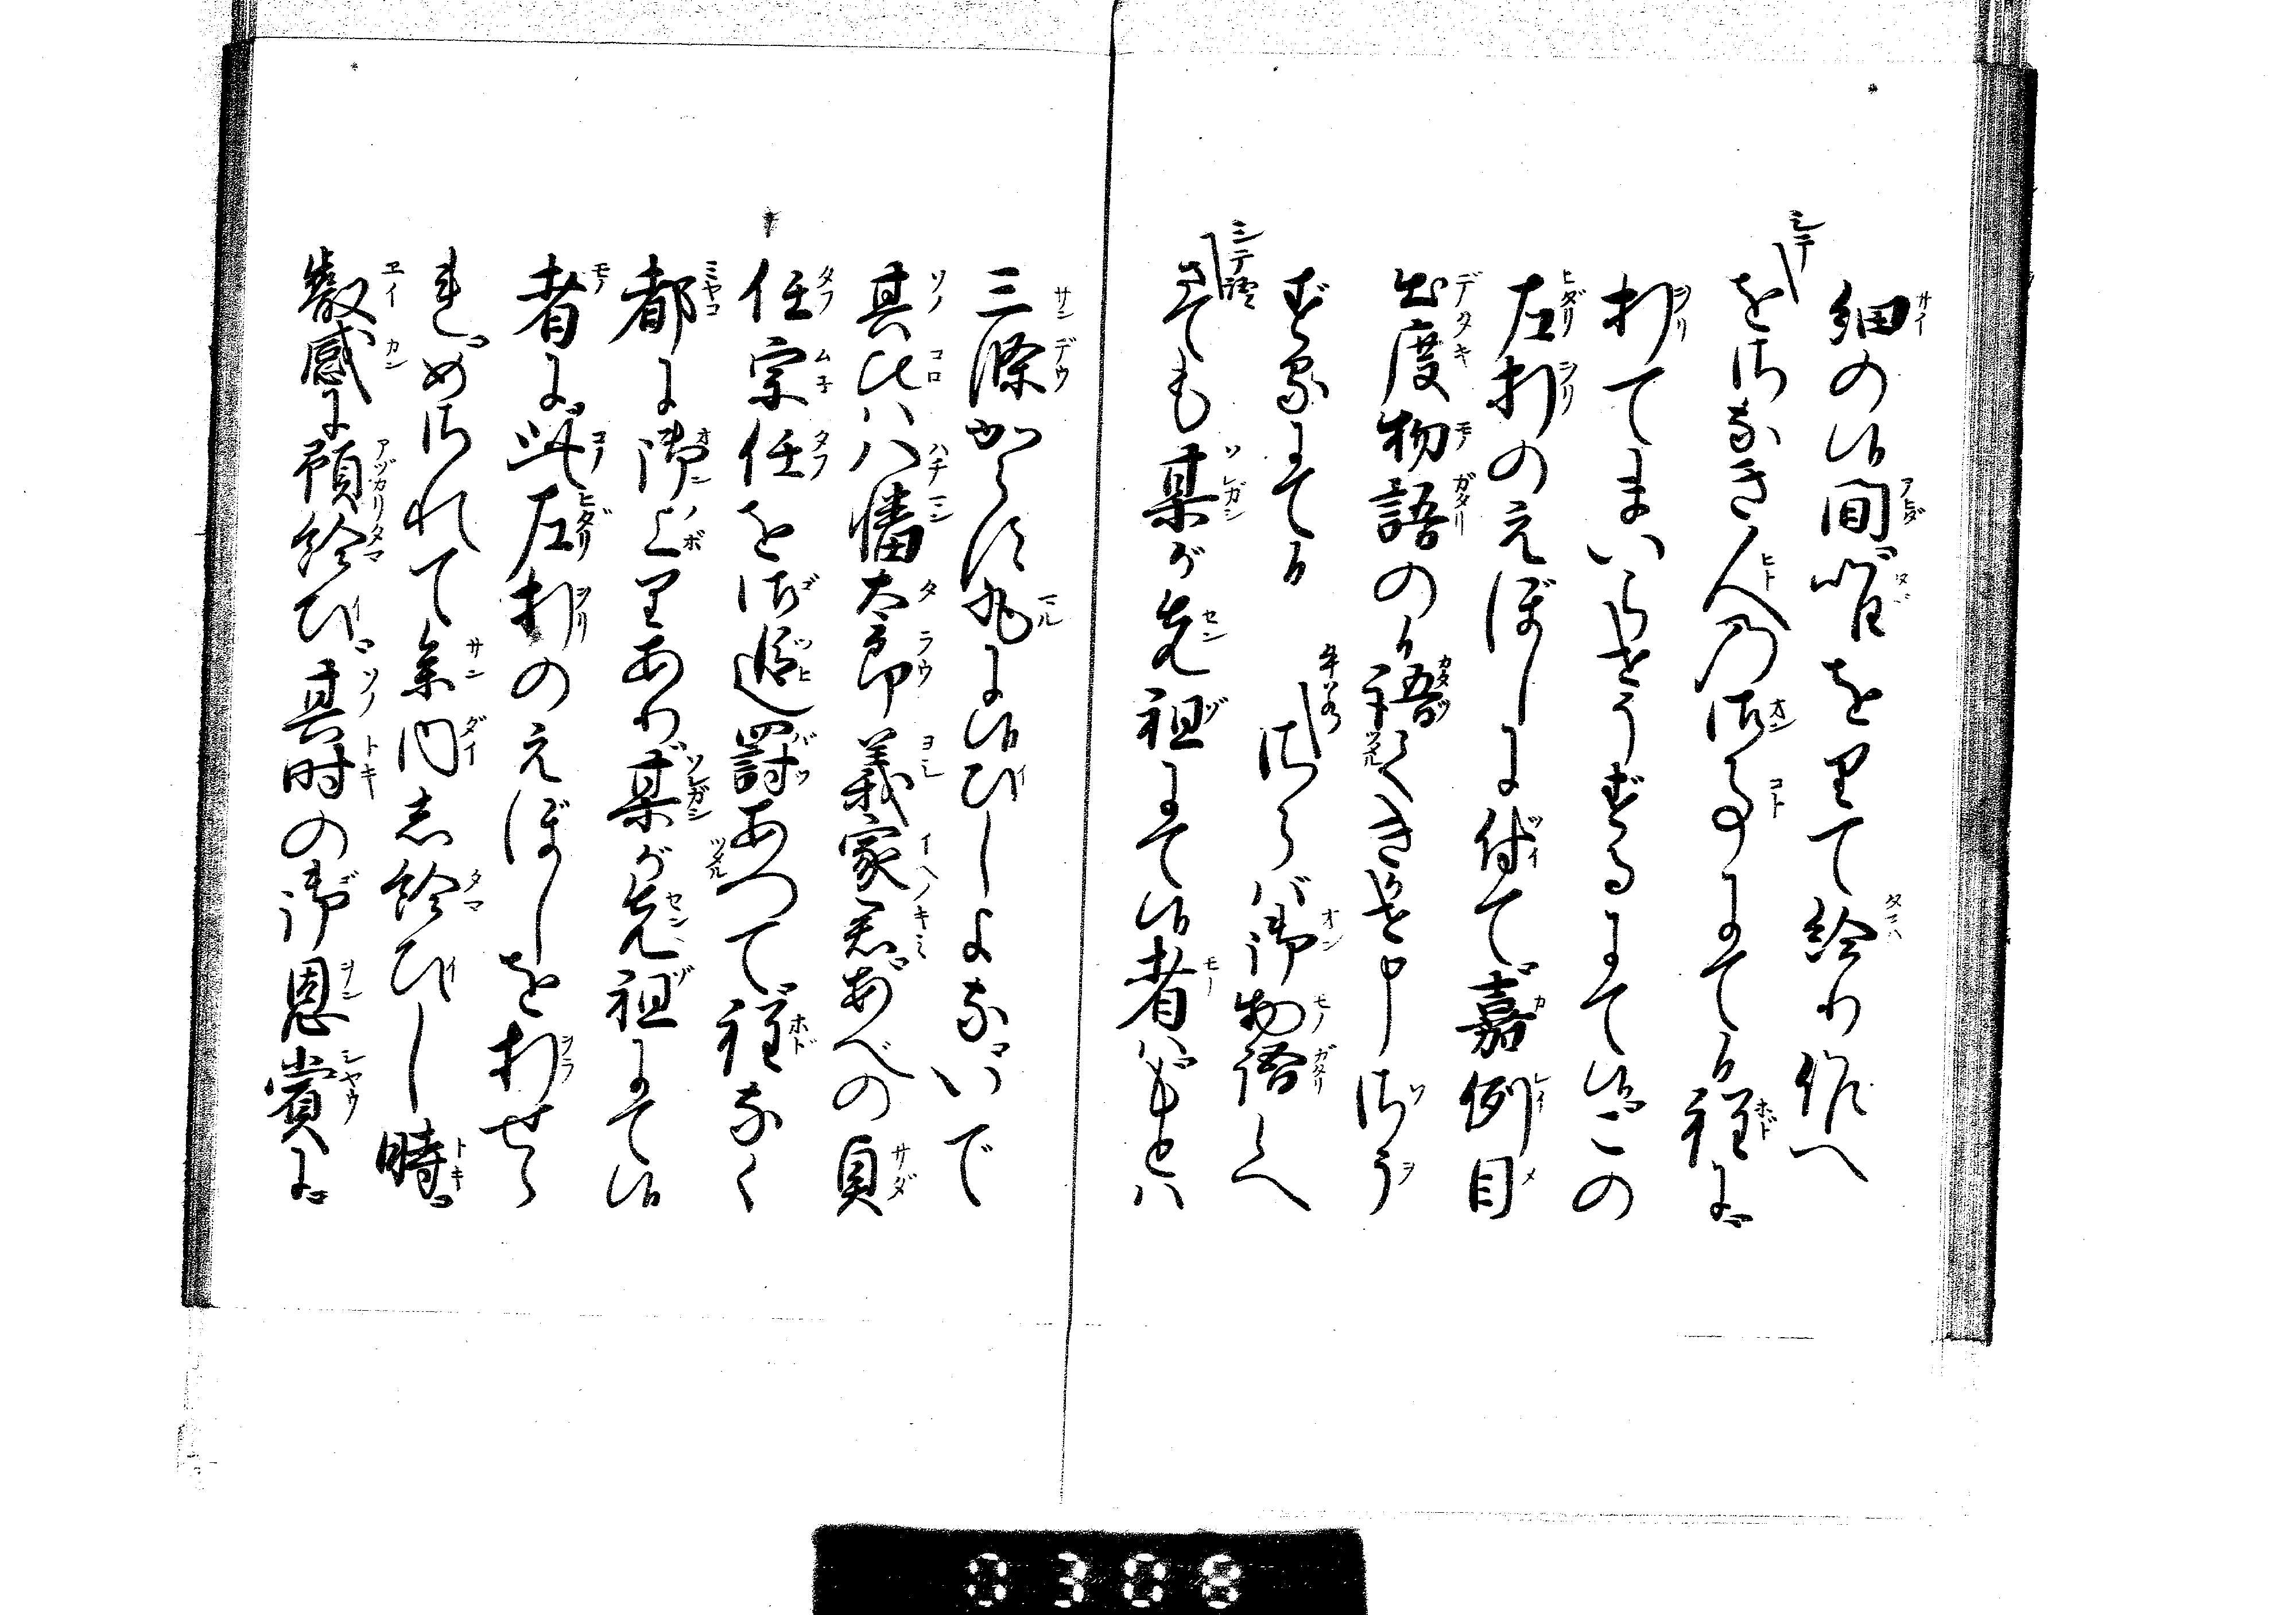 細の候間唯をりて給り候へ
シテ をさなき人乃御事にて候程に
折てまいらせうずるにて候この
左折のえぼしに付て嘉例目
出度物語の候語てきかせ申さう
ずるにて候 牛若 さらバ御物語候へ
シテ語 さても某が先祖にて候者ハもとハ
三條からす丸に候ひしよないで
其比ハ八幡太郎義家君あべの貞
任宗任を御追罰あつて程なく
都に御上りあり某が先祖にて候
者に此左折のえぼしを折せら
れめされて参内し給ひし時
叡感に預給ひ其時の御恩賞に
0308